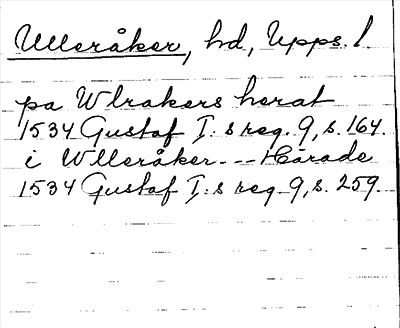 Ulleråker, hd, Upps. l
pa Wlrakers herat
1534 Gustaf I:s reg. 9, s. 164.
i Wlleråker --- Hårade
1534 Gustaf I:s reg. 9, s. 259.